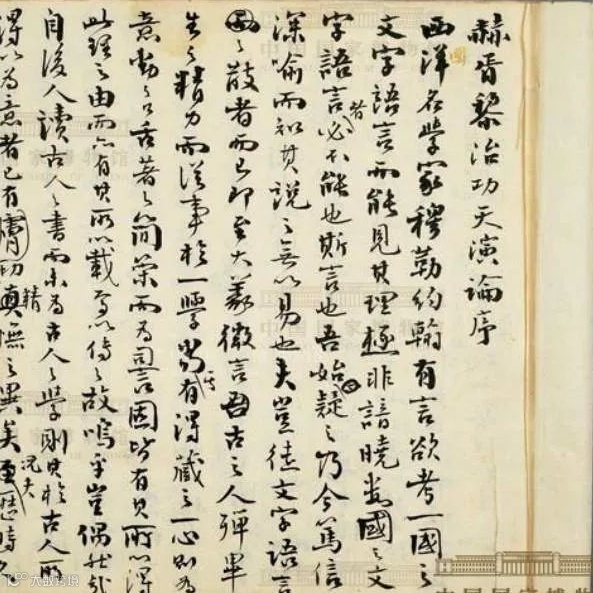 赫胥黎治功天演論序
西洋名學家穆勒約翰有言欲考一國之
文字語言而能見其理極非諳曉數國之文
字語言者必不能也斯言也吾始疑之乃今篤信
深喻而知其說之無以易也夫豈徒文字語言
之散者而已即至大義微言吾古之人殫畢
生之精力而從事於一學當其有得藏之一心則為
意動之口舌著之簡策而為詞固皆有其所以得
此理之由而亦有其所以載焉以傳之故嗚乎豈偶然哉
自後人讀古人之書而未為古人之學則其於古人所
得以為意者已有膚切精之異矣況夫歷時
中国国家博物馆